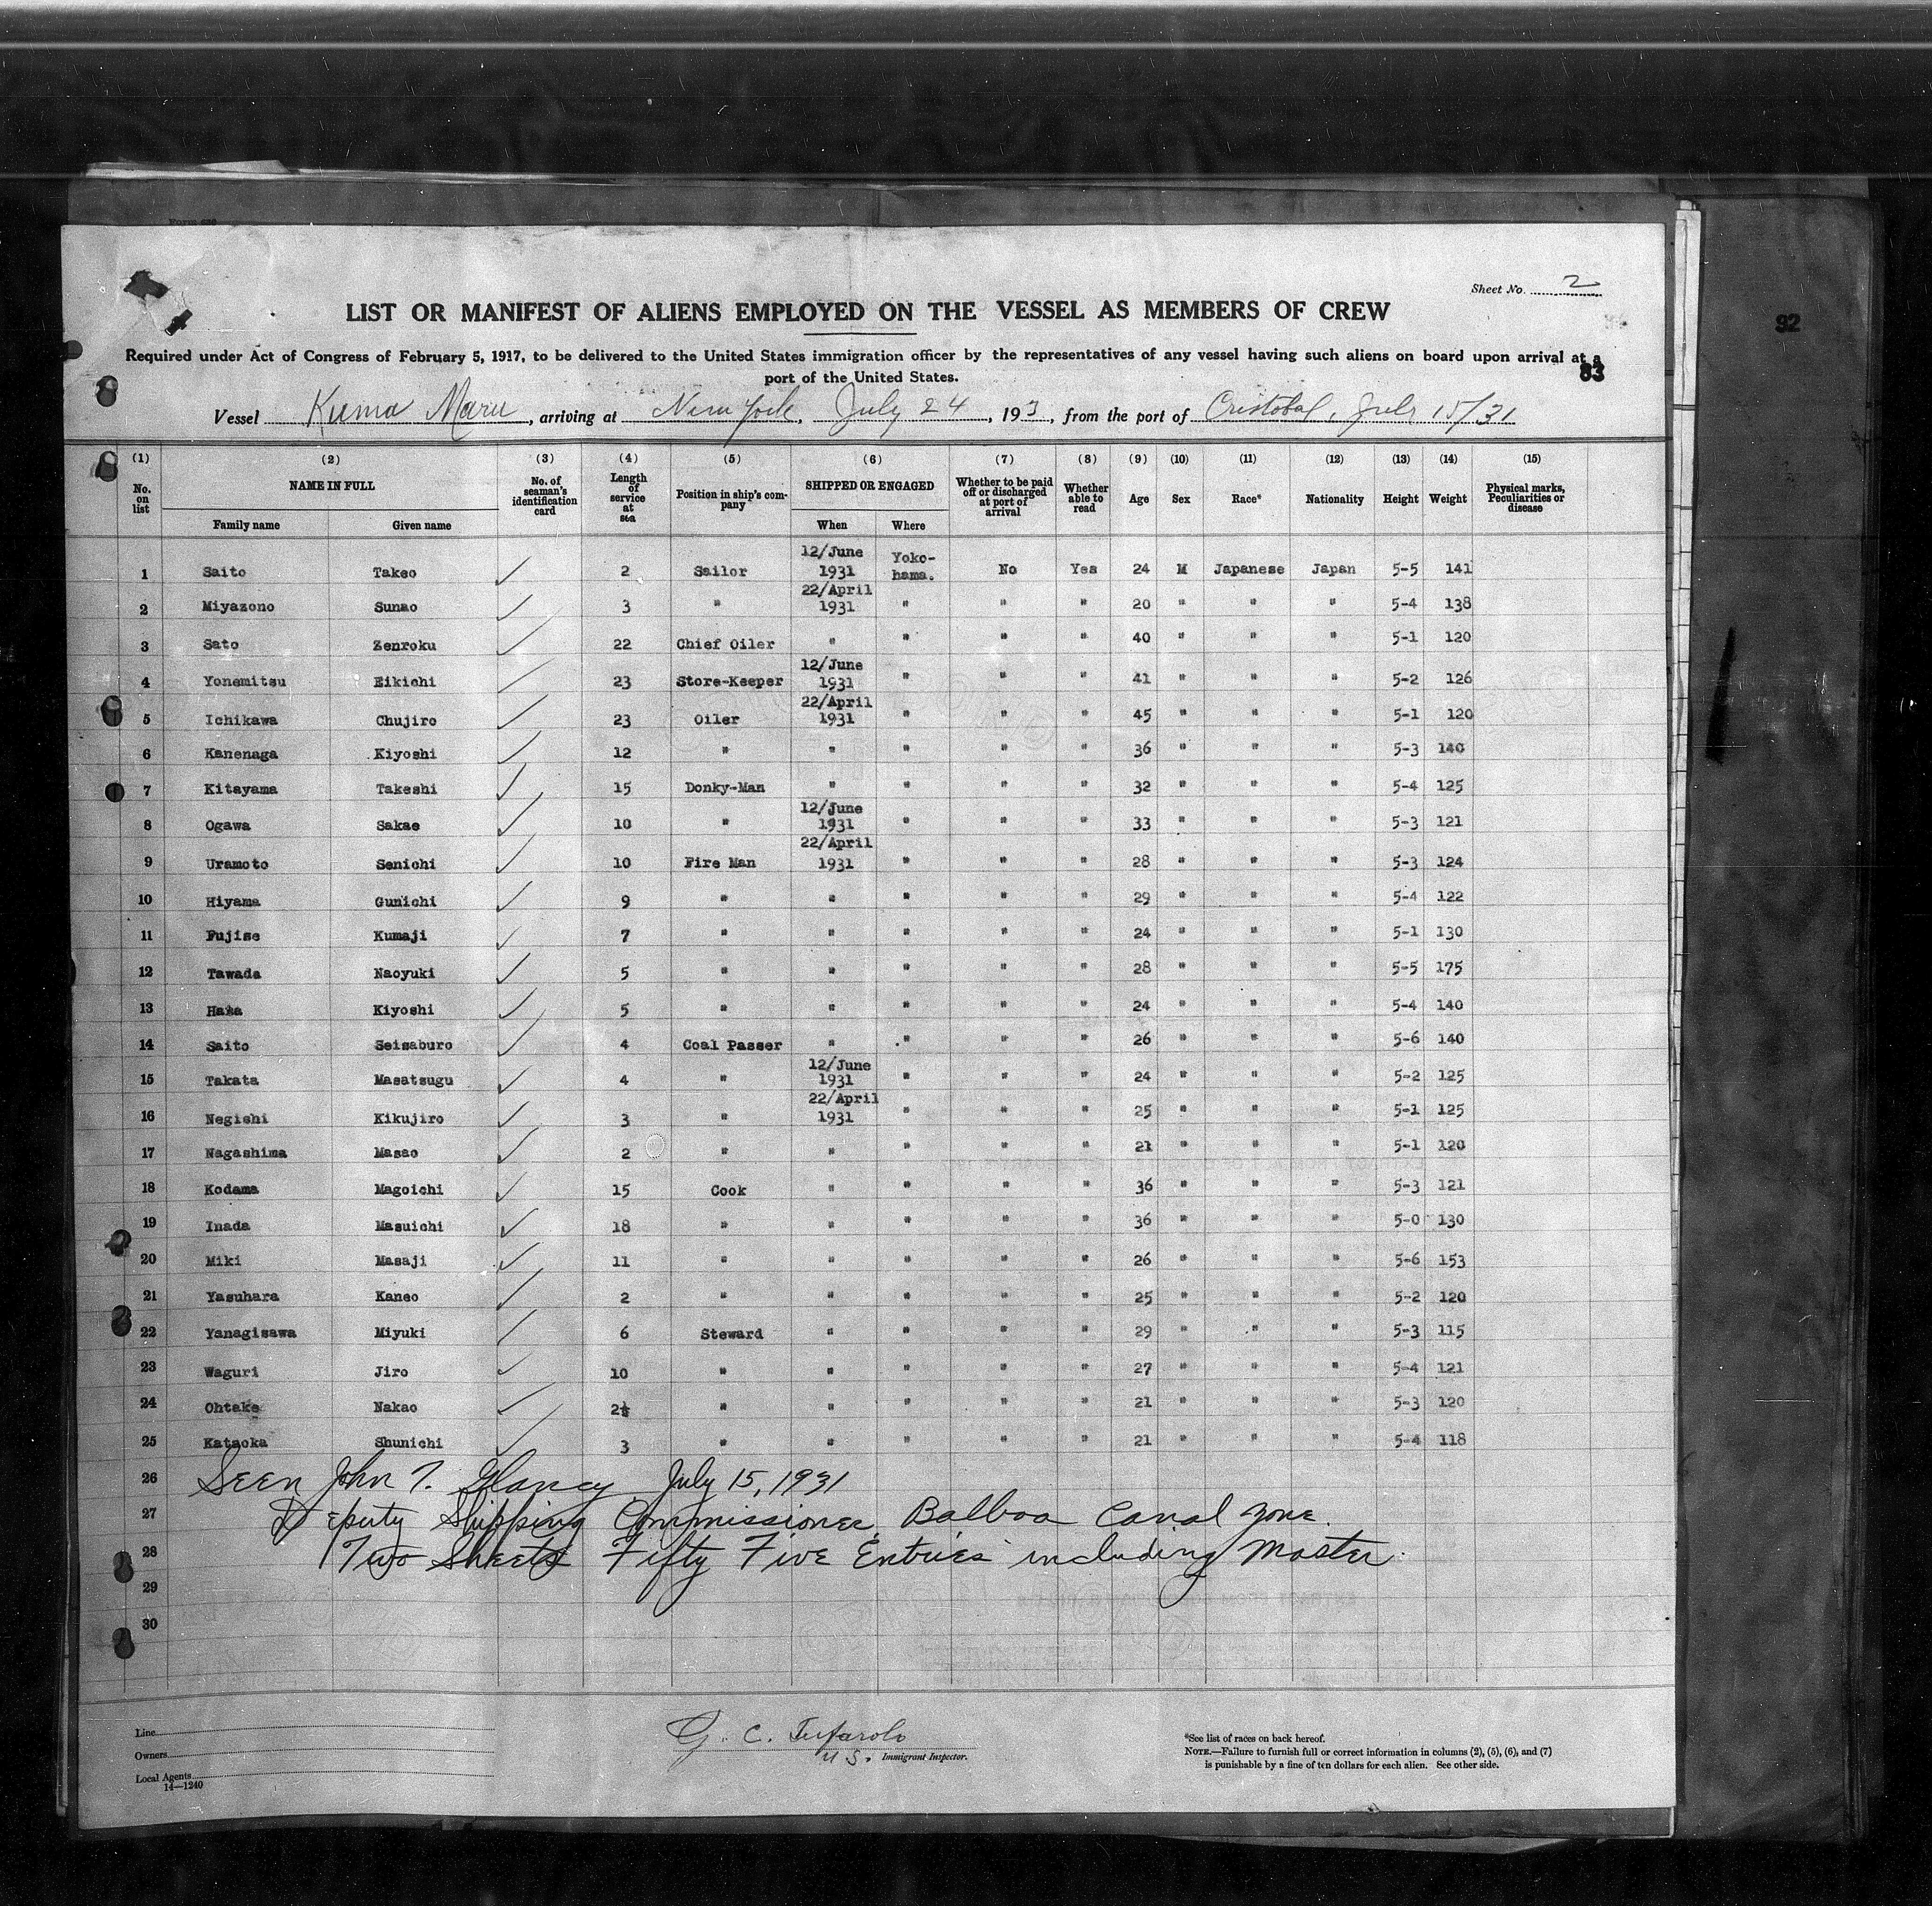 Form 686
Sheet No. 2
LIST OR MANIFEST OF ALIENS EMPLOYED ON THE VESSEL AS MEMBERS OF CREW
92
Required under Act of Congress of February 5, 1917, to be delivered to the United States immigration officer by the representatives of any vessel having such aliens on board upon arrival at a
port of the United States.
83
Vessel Kuma Maru, arriving at New York, July 24, 193, from the port of Cristobal, July 15/31
(1) (2) (3) (4) (5) (6) (7) (8) (9) (10) (11) (12) (13) (14) (15)
No. on list NAME IN FULL Family name Given name No. of seaman's identification card Length of service at sea Position in ship's company SHIPPED OR ENGAGED When Where Whether to be paid off or discharged at port of arrival Whether able to read Age Sex Race* Nationality Height Weight Physical marks, Peculiarities or disease
1 Saito Takeo ✓ 2 Sailor 12/June 1931 Yoko-hama. No Yes 24 M Japanese Japan 5-5 141
2 Miyazono Sunao ✓ 3 " 22/April 1931 " " " 20 " " " 5-4 138
3 Sato Zenroku ✓ 22 Chief Oiler " " " " 40 " " " 5-1 120
4 Yonemitsu Eikichi ✓ 23 Store-Keeper 12/June 1931 " " " 41 " " " 5-2 126
5 Ichikawa Chujiro ✓ 23 Oiler 22/April 1931 " " " 45 " " " 5-1 120
6 Kanenaga Kiyoshi ✓ 12 " " " " " 36 " " " 5-3 140
7 Kitayama Takeshi ✓ 15 Donky-Man " " " " 32 " " " 5-4 125
8 Ogawa Sakae ✓ 10 " 12/June 1931 " " " 33 " " " 5-3 121
9 Uramoto Senichi ✓ 10 Fire Man 22/April 1931 " " " 28 " " " 5-3 124
10 Hiyama Gunichi ✓ 9 " " " " " 29 " " " 5-4 122
11 Fujise Kumaji ✓ 7 " " " " " 24 " " " 5-1 130
12 Tawada Naoyuki ✓ 5 " " " " " 28 " " " 5-5 175
13 Kiyoshi ✓ 5 " " " " " 24 " " " 5-4 140
14 Saito Seisaburo ✓ 4 Coal Passer " " " " 26 " " " 5-6 140
15 Takata Masatsugu ✓ 4 " 12/June 1931 " " " 24 " " " 5-2 125
16 Negishi Kikujiro ✓ 3 " 22/April 1931 " " " 25 " " " 5-1 125
17 Nagashima Masao ✓ 2 " " " " " 21 " " " 5-1 120
18 Kodama Magoichi ✓ 15 Cook " " " " 36 " " " 5-3 121
19 Inada Masuichi ✓ 18 " " " " " 36 " " " 5-0 130
20 Miki Masaji ✓ 11 " " " " " 26 " " " 5-6 153
21 Yasuhara Kaneo ✓ 2 " " " " " 25 " " " 5-2 120
22 Yanagisawa Miyuki ✓ 6 Steward " " " " 29 " " " 5-3 115
23 Waguri Jiro ✓ 10 " " " " " 27 " " " 5-4 121
24 Ohtake Nakao ✓ " " " " " 21 " " " 5-3 120
25 Kataoka Shunichi ✓ 3 " " " " " 21 " " " 5-4 118
26 Seen John T. Glancy July 15, 1931
27 Deputy Shipping Commissioner, Balboa Canal Zone.
28 Two Sheets Fifty Five Entries including Master.
29
30
Line
Owners
Local Agents
14—1240
G. C. Tufarolo
U.S. Immigrant Inspector.
*See list of races on back hereof.
NOTE.—Failure to furnish full or correct information in columns (2), (5), (6), and (7)
is punishable by a fine of ten dollars for each alien. See other side.